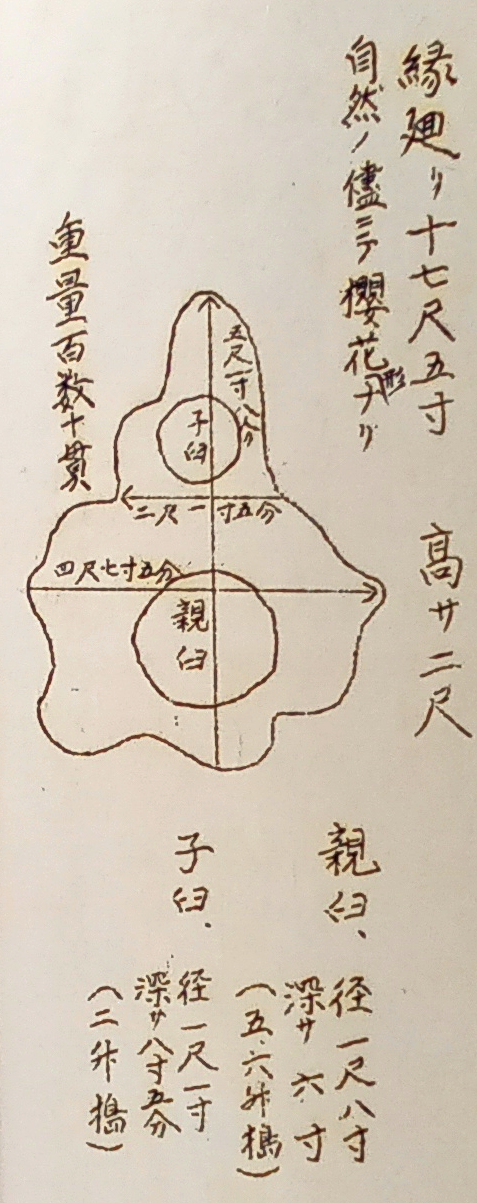 縁廻リ十七尺五寸 高サ二尺
自然ノ儘ニテ櫻花形ナリ
重量百数十貫
五尺一寸八分
子臼
二尺一寸五分
四尺七寸五分
親臼
親臼、
径一尺八寸
深サ六寸
(五、六升搗)
子臼、
径一尺一寸
深サ八寸五分
(二升搗)